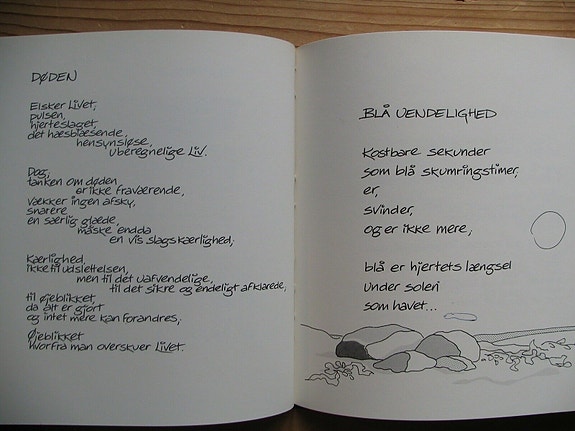 DØDEN
Elsker Livet,
pulsen,
hjerteslaget,
det hæsblæsende,
hensynsløse,
uberegnelige Liv.
Dog,
tanken om døden
er ikke fraværende,
vækker ingen afsky,
snarere
en særlig glæde,
måske endda
en vis slags kærlighed;
Kærlighed,
ikke til udslettelsen,
men til det uafvendelige,
til det sikre og endeligt afklarede,
til øjeblikket,
da alt er gjort
og intet mere kan forandres,
Øjeblikket
hvorfra man overskuer Livet.
BLÅ UENDELIGHED
Kostbare sekunder
som blå skumringstimer,
er,
svinder,
og er ikke mere,
blå er hjertets længsel
under solen
som havet...